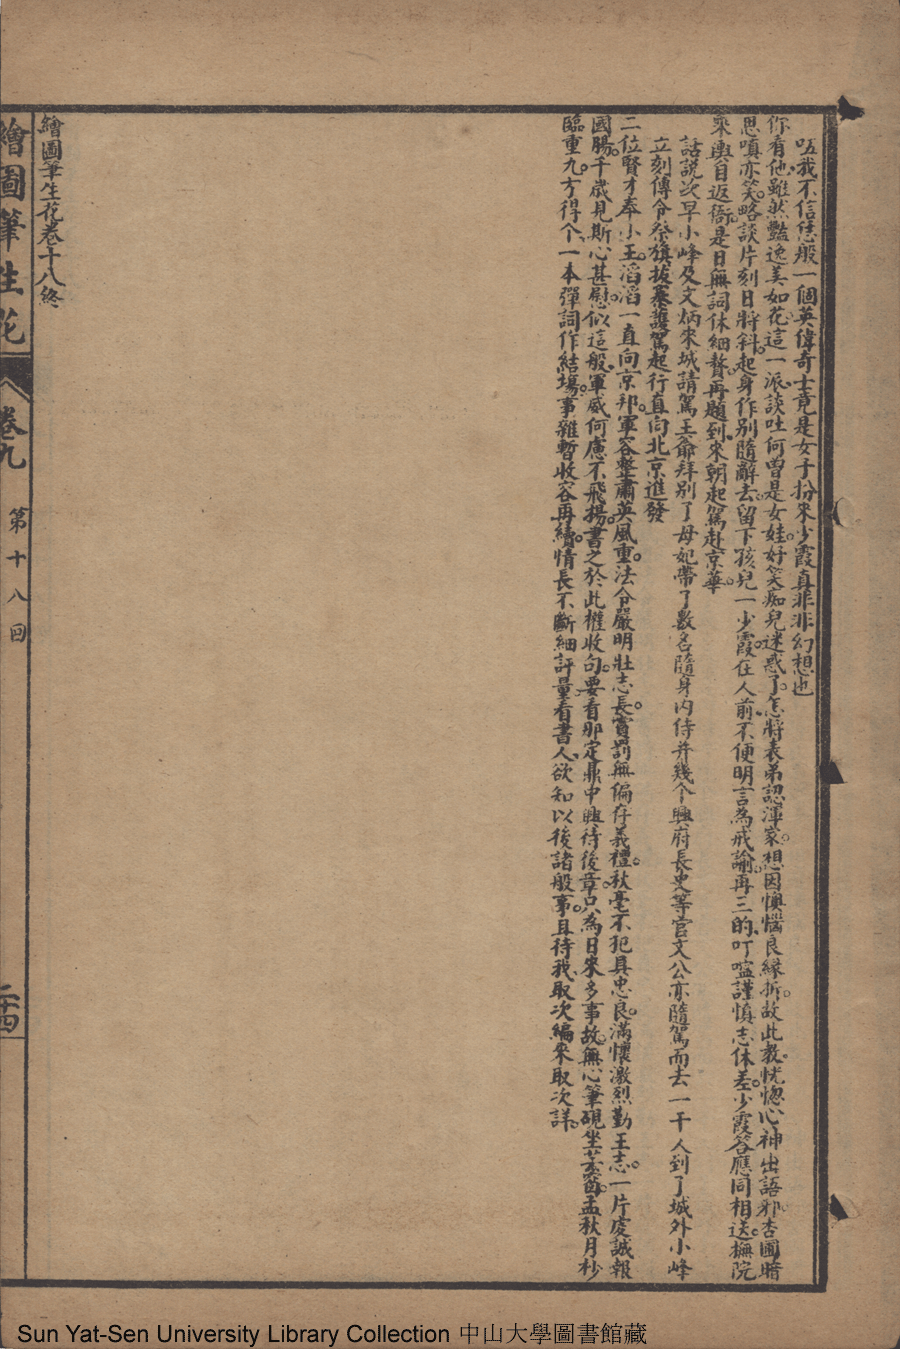 唔我不信恁般一個英偉奇士竟是女子扮來少霞真非非幻想也
你看他雖然豔逸美如花這一派談吐何曾是女娃好笑痴兒迷惑了怎將表弟認渾家想因懊惱良緣折故此教恍惚心神出語邪杏圃暗
思嗔亦笑略談片刻日將斜起身作別隨辭去留下孩兒一少霞在人前不便明言為戒諭再三的叮嚀謹慎志休差少霞答應同相送撫院
乘輿自返衙是日無詞休細贅再題到來朝起駕赴京華
話說次早小峰及文炳來城請駕王爺拜別了母妃帶了數名隨身內侍并幾个興府長史等官文公亦隨駕而去一干人到了城外小峰
立刻傳令祭旗拔寨護駕起行直向北京進發
二位賢才奉小王滔滔一直向京邦軍容整肅英風重法令嚴明壯志長賞罰無偏存義禮秋毫不犯具忠良滿懷激烈勤王志一片虔誠報
國腸千歲見斯心甚慰似這般軍威何慮不飛揚書之於此權收句要看那定鼎中興待後章只為日來多事故無心筆硯坐芸窗孟秋月杪
臨重九方得个一本彈詞作結場事雜暫收容再續情長不斷細評量看書人欲知以後諸般事且待我取次編來取次詳
繪圖筆生花卷十八終
繪圖筆生花 卷九 第十八回 二十四
Sun Yat-Sen University Library Collection 中山大學圖書館藏